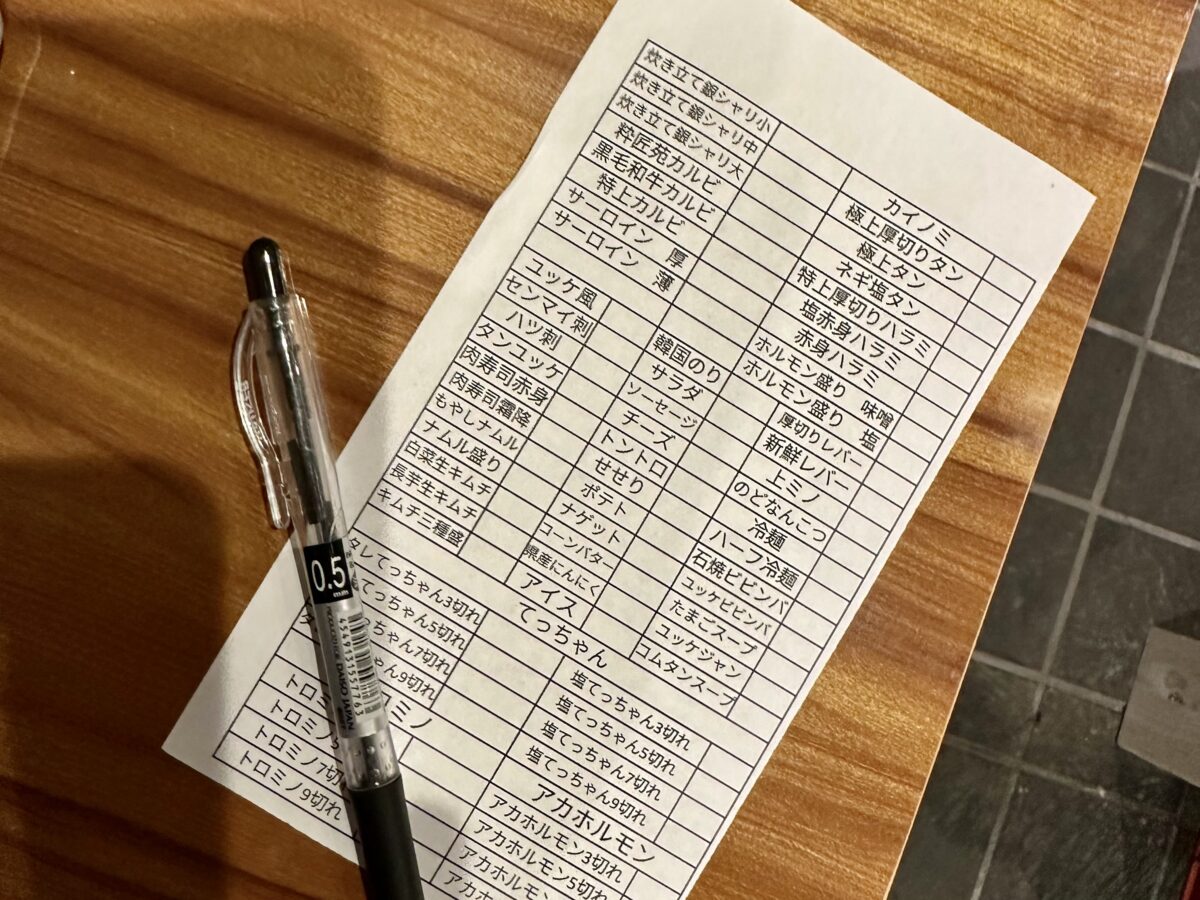 炊き立て銀シャリ小
炊き立て銀シャリ中
炊き立て銀シャリ大
粋匠苑カルビ
黒毛和牛カルビ
特上カルビ
サーロイン 厚
サーロイン 薄
カイノミ
極上厚切りタン
極上タン
ネギ塩タン
特上厚切りハラミ
塩赤身ハラミ
赤身ハラミ
ホルモン盛り 味噌
ホルモン盛り 塩
厚切りレバー
新鮮レバー
上ミノ
のどなんこつ
冷麺
ハーフ冷麺
石焼ビビンバ
ユッケビビンバ
たまごスープ
ユッケジャン
コムタンスープ
ユッケ風
センマイ刺
ハツ刺
タンユッケ
肉寿司赤身
肉寿司霜降
もやしナムル
ナムル盛り
白菜生キムチ
長芋生キムチ
キムチ三種盛
韓国のり
サラダ
ソーセージ
チーズ
トントロ
せせり
ポテト
ナゲット
コーンバター
県産にんにく
アイス
てっちゃん
タレてっちゃん3切れ
てっちゃん5切れ
ちゃん7切れ
ゃん9切れ
塩てっちゃん3切れ
塩てっちゃん5切れ
塩てっちゃん7切れ
塩てっちゃん9切れ
ミノ
トロミノ
トロミノ5
トロミノ7切
トロミノ9切れ
アカホルモン
アカホルモン3切れ
アカホルモン5切れ
アカホ
0.5
mm
DAISO JAPAN
4549131557763